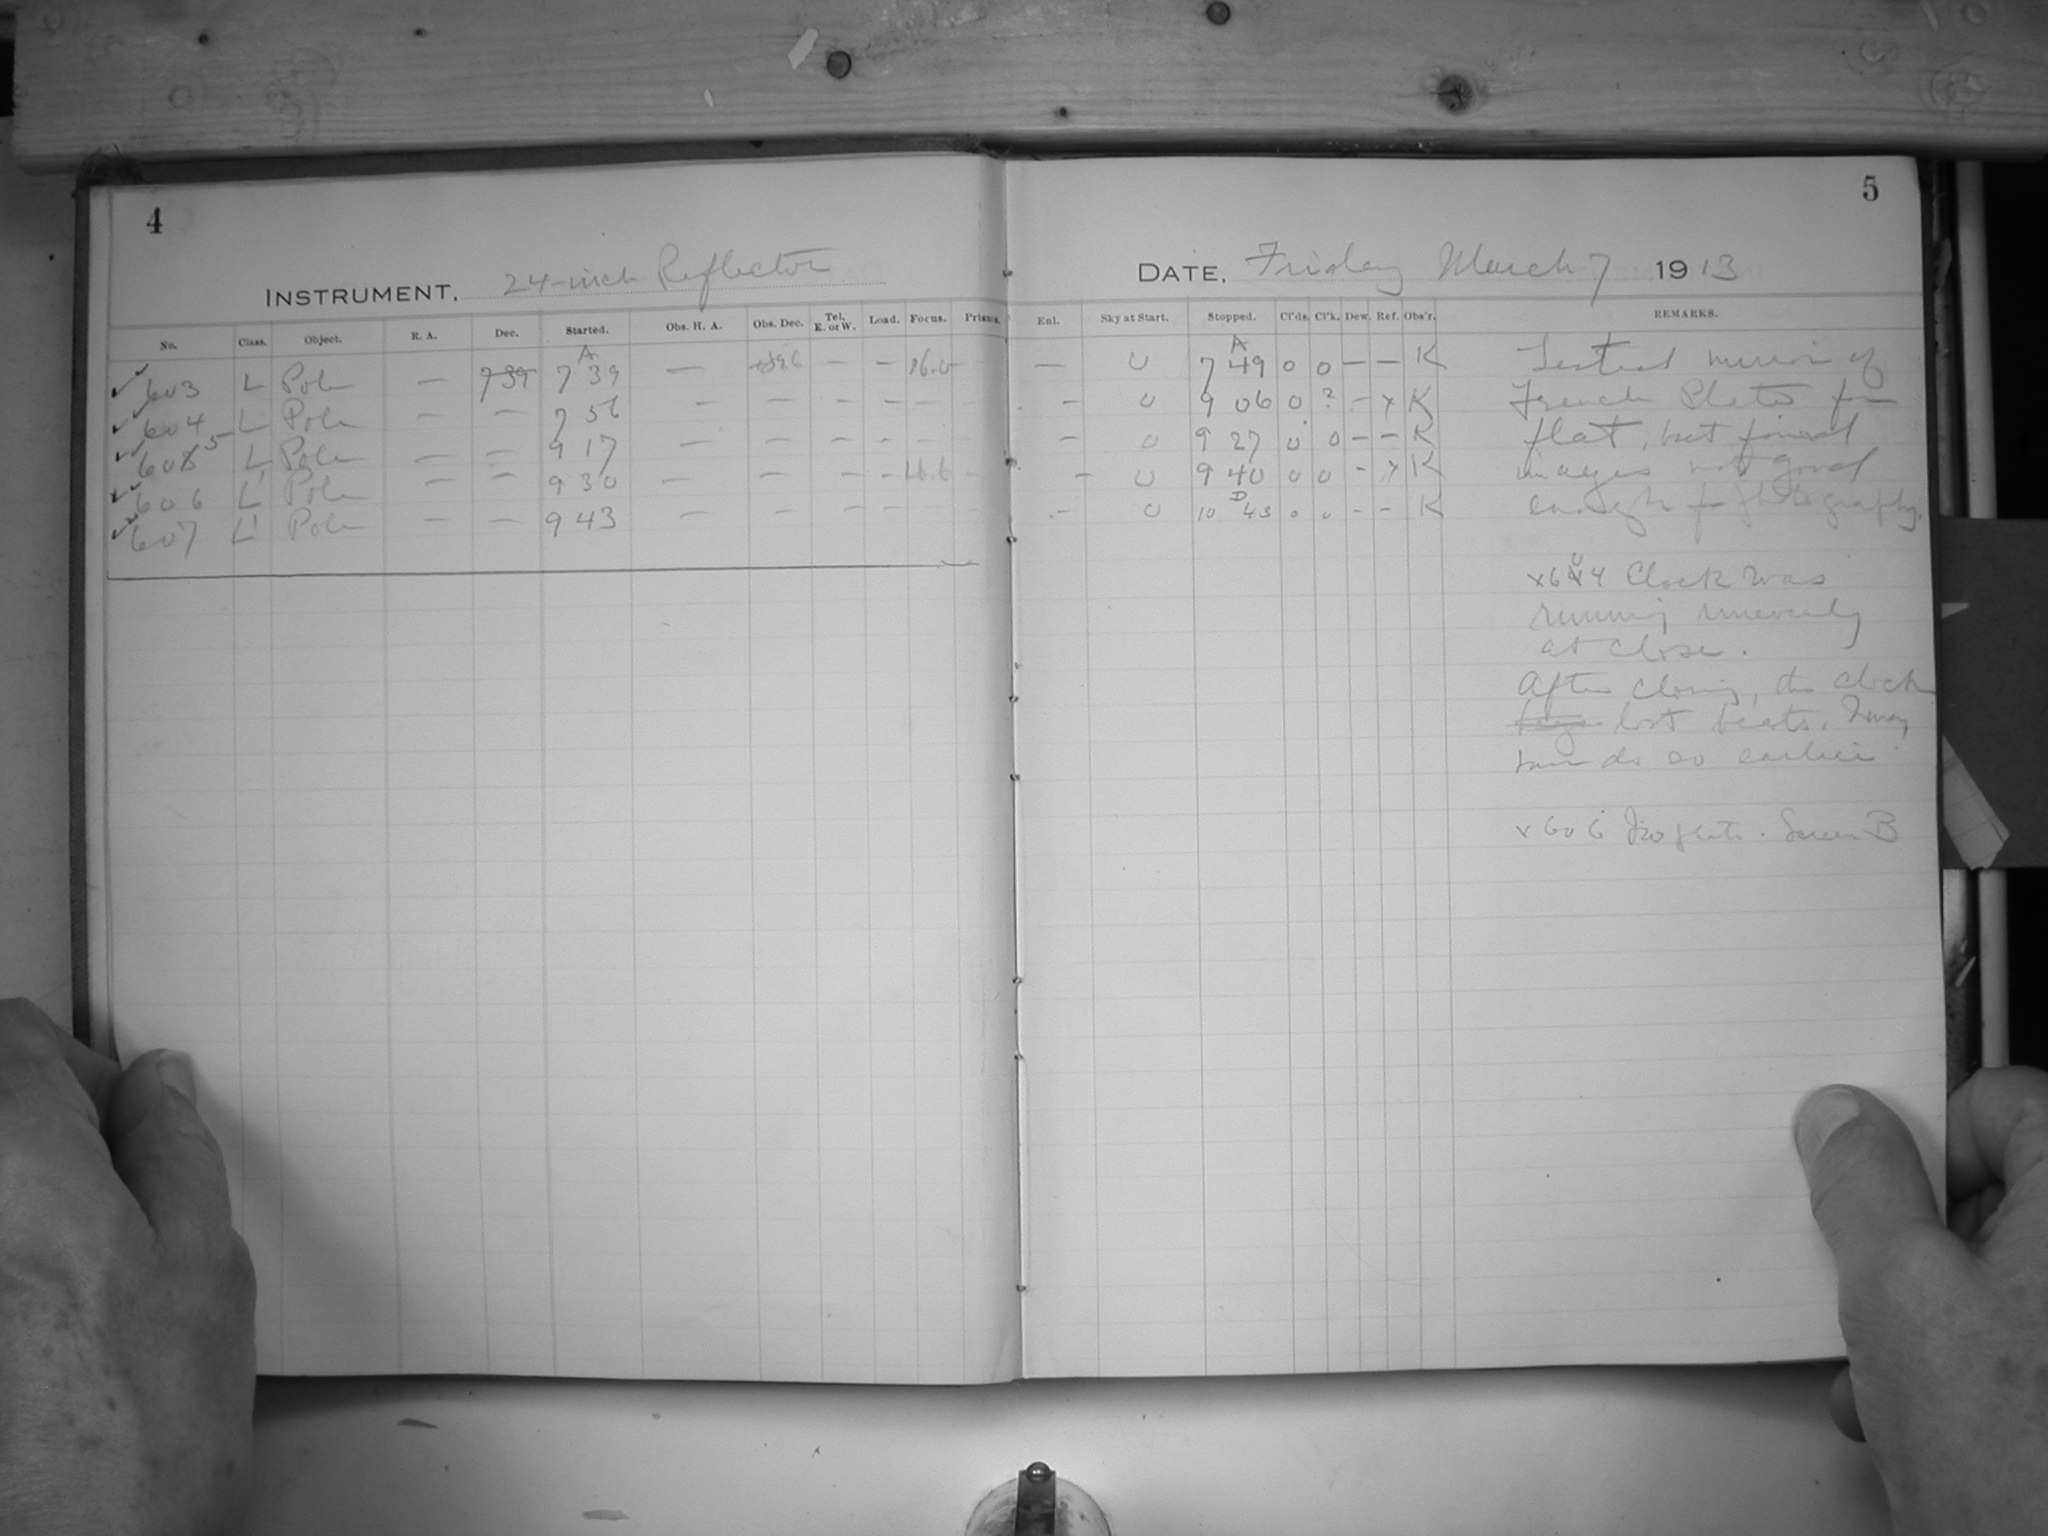 4
INSTRUMENT, 24-inch Reflector
No. Class. Object. R. A. Dec. Started. Obs. H. A. Obs. Dec. Tel. E. or W. Load. Focus. Prisms.
A
603 L Pole — 7 39 7 39 — +89.6 — — 16.0 —
604 L Pole — — 7 56 — — — — — —
605 L Pole — — 9 17 — — — — — —
606 L' Pole — — 9 30 — — — — 16.6 —
607 L' Pole — — 9 43 — — — — — —
5
DATE, Friday March 7 1913
Enl. Sky at Start. Stopped. Cl'ds. Cl'k. Dew. Ref. Obs'r. REMARKS.
A
— 0 7 49 0 0 — — K Tested mirror of
— 0 9 06 0 ? — x K French Plate for
— 0 9 27 0 0 — — K flat, but found
— 0 9 40 0 0 — x K images not good
D
— 0 10 43 0 0 — — K enough for photography.
x604 Clock was
running unevenly
at close.
After closing, the clock
lost beats. I may
have do so earlier
x 606 Two plates. Screen B